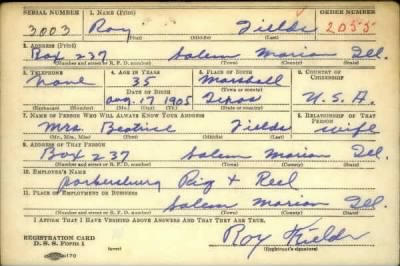 SERIAL NUMBER 1. NAME (Print) ORDER NUMBER
3003 Roy Fields 2055
(First) (Middle) (Last)
2. ADDRESS (Print)
Box 237 Salem Marion Ill.
(Number and street or R. F. D. number) (Town) (County) (State)
3. TELEPHONE 4. AGE IN YEARS 5. PLACE OF BIRTH 6. COUNTRY OF CITIZENSHIP
None 35 Marshall
DATE OF BIRTH (Town or county)
Aug. 17 1905 Texas U.S.A.
(Exchange) (Number) (Mo.) (Day) (Yr.) (State or country)
7. NAME OF PERSON WHO WILL ALWAYS KNOW YOUR ADDRESS 8. RELATIONSHIP OF THAT PERSON
Mrs. Beatrice Fields wife
(Mr., Mrs., Miss) (First) (Middle) (Last)
9. ADDRESS OF THAT PERSON
Box 237 Salem Marion Ill.
(Number and street or R. F. D. number) (Town) (County) (State)
10. EMPLOYER'S NAME
Parkersburg Rig + Reel
11. PLACE OF EMPLOYMENT OR BUSINESS
Salem Marion Ill.
(Number and street or R. F. D. number) (Town) (County) (State)
I AFFIRM THAT I HAVE VERIFIED ABOVE ANSWERS AND THAT THEY ARE TRUE.
REGISTRATION CARD
D. S. S. FORM 1 (over) Roy Fields
(Registrant's signature)